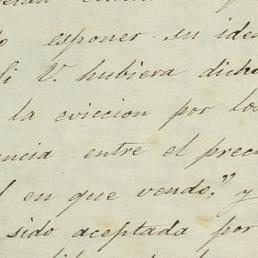 esponer su idea
Si V. hubiera dicho
la eviccion por los
encia entre el preci
l en que vendo," y
sido aceptada por